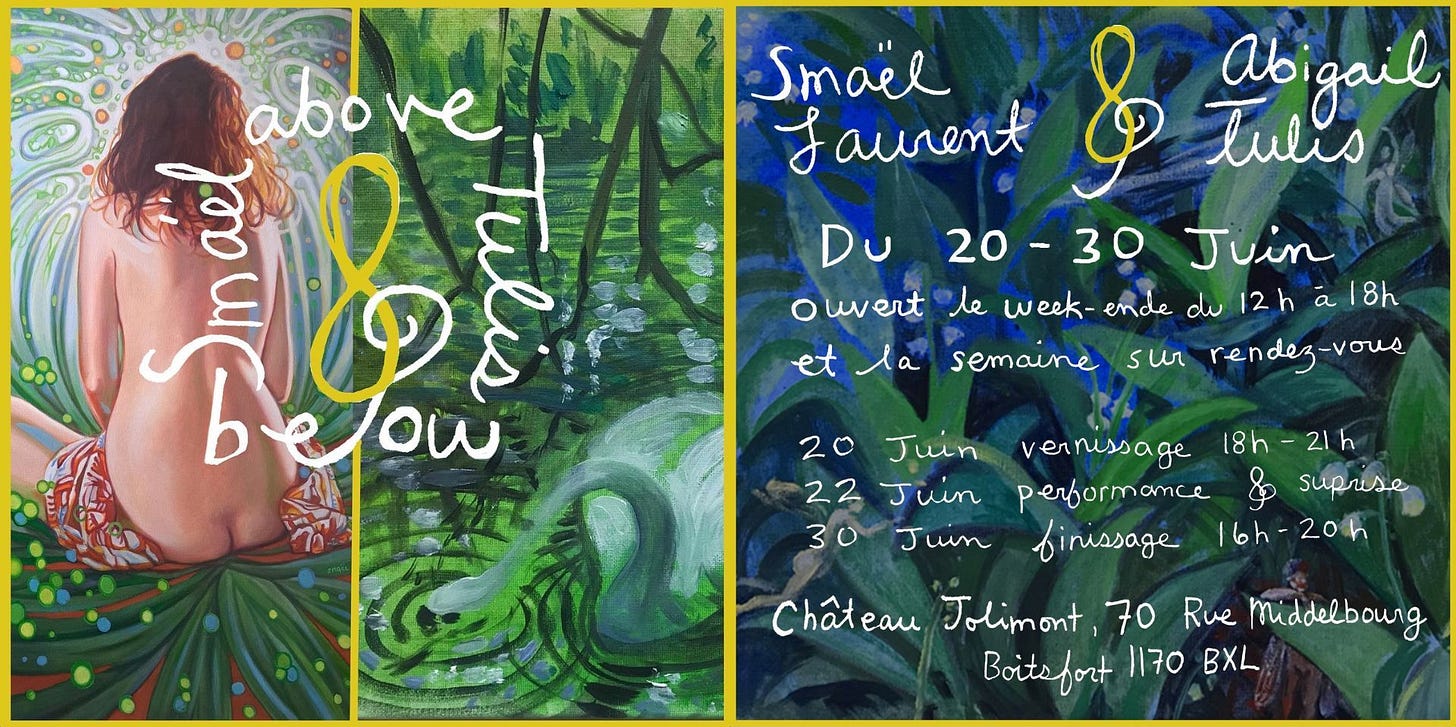 above
Smaël
&
Tulis
below
Smaël & Abigail
Laurent Tulis
Du 20 - 30 Juin
ouvert le week-ende du 12h à 18h
et la semaine sur rendez-vous
20 Juin vernissage 18h - 21h
22 Juin performance & suprise
30 Juin finissage 16h - 20h
Château Jolimont, 70 Rue Middelbourg
Boitsfort 1170 BXL